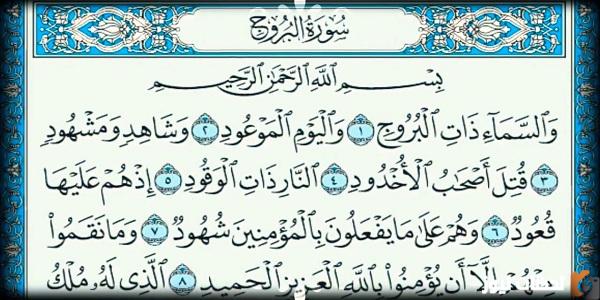 سُورَةُ البُرُوجِ
بِسۡمِ ٱللَّهِ ٱلرَّحۡمَٰنِ ٱلرَّحِيمِ
وَٱلسَّمَآءِ ذَاتِ ٱلۡبُرُوجِ ١ وَٱلۡيَوۡمِ ٱلۡمَوۡعُودِ ٢ وَشَاهِدٖ وَمَشۡهُودٖ
٣ قُتِلَ أَصۡحَٰبُ ٱلۡأُخۡدُودِ ٤ ٱلنَّارِ ذَاتِ ٱلۡوَقُودِ ٥ إِذۡ هُمۡ عَلَيۡهَا
قُعُودٞ ٦ وَهُمۡ عَلَىٰ مَا يَفۡعَلُونَ بِٱلۡمُؤۡمِنِينَ شُهُودٞ ٧ وَمَا نَقَمُواْ
مِنۡهُمۡ إِلَّآ أَن يُؤۡمِنُواْ بِٱللَّهِ ٱلۡعَزِيزِ ٱلۡحَمِيدِ ٨ ٱلَّذِي لَهُۥ مُلۡكُ